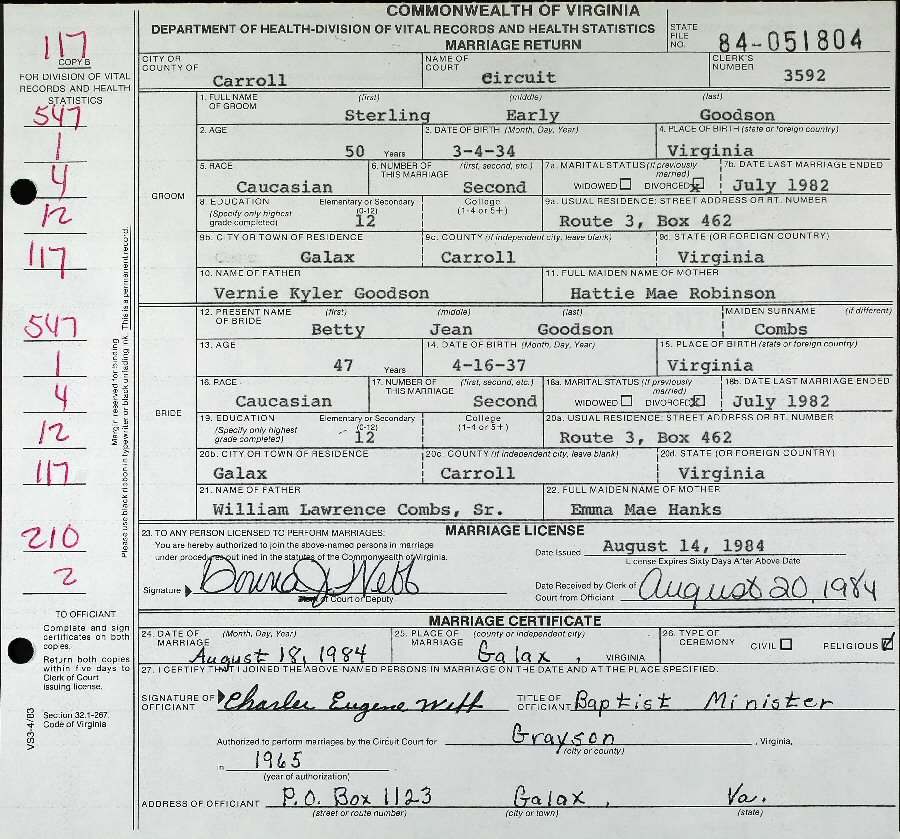 COMMONWEALTH OF VIRGINIA
DEPARTMENT OF HEALTH-DIVISION OF VITAL RECORDS AND HEALTH STATISTICS
MARRIAGE RETURN
STATE FILE NO. 84-051804
117
COPY B
FOR DIVISION OF VITAL RECORDS AND HEALTH STATISTICS
547
1
4
12
117
547
1
4
12
117
210
2
Margin reserved for binding.
Please use black ribbon in typewriter or black unfading ink. This is a permanent record.
TO OFFICIANT
Complete and sign certificates on both copies.
Return both copies within five days to Clerk of Court issuing license.
Section 32.1-267, Code of Virginia
VS3-4/83
CITY OR COUNTY OF Carroll
NAME OF COURT Circuit
CLERK'S NUMBER 3592
GROOM
1. FULL NAME OF GROOM (first) (middle) (last)
Sterling Early Goodson
2. AGE 50 Years
3. DATE OF BIRTH (Month, Day, Year) 3-4-34
4. PLACE OF BIRTH (state or foreign country) Virginia
5. RACE Caucasian
6. NUMBER OF THIS MARRIAGE (first, second, etc.) Second
7a. MARITAL STATUS (If previously married) WIDOWED ☐ DIVORCED ☒
7b. DATE LAST MARRIAGE ENDED July 1982
8. EDUCATION (Specify only highest grade completed) Elementary or Secondary (0-12) 12
College (1-4 or 5+)
9a. USUAL RESIDENCE: STREET ADDRESS OR RT. NUMBER Route 3, Box 462
9b. CITY OR TOWN OF RESIDENCE Galax
9c. COUNTY (if independent city, leave blank) Carroll
9d. STATE (OR FOREIGN COUNTRY) Virginia
10. NAME OF FATHER Vernie Kyler Goodson
11. FULL MAIDEN NAME OF MOTHER Hattie Mae Robinson
BRIDE
12. PRESENT NAME OF BRIDE (first) (middle) (last) MAIDEN SURNAME (if different)
Betty Jean Goodson Combs
13. AGE 47 Years
14. DATE OF BIRTH (Month, Day, Year) 4-16-37
15. PLACE OF BIRTH (state or foreign country) Virginia
16. RACE Caucasian
17. NUMBER OF THIS MARRIAGE (first, second, etc.) Second
18a. MARITAL STATUS (If previously married) WIDOWED ☐ DIVORCED ☒
18b. DATE LAST MARRIAGE ENDED July 1982
19. EDUCATION (Specify only highest grade completed) Elementary or Secondary (0-12) 12
College (1-4 or 5+)
20a. USUAL RESIDENCE: STREET ADDRESS OR RT. NUMBER Route 3, Box 462
20b. CITY OR TOWN OF RESIDENCE Galax
20c. COUNTY (if independent city, leave blank) Carroll
20d. STATE (OR FOREIGN COUNTRY) Virginia
21. NAME OF FATHER William Lawrence Combs, Sr.
22. FULL MAIDEN NAME OF MOTHER Emma Mae Hanks
MARRIAGE LICENSE
23. TO ANY PERSON LICENSED TO PERFORM MARRIAGES:
You are hereby authorized to join the above-named persons in marriage
under procedures outlined in the statutes of the Commonwealth of Virginia.
Date Issued August 14, 1984
License Expires Sixty Days After Above Date
Signature Donna J Webb
Clerk of Court or Deputy
Date Received by Clerk of Court from Officiant August 20, 1984
MARRIAGE CERTIFICATE
24. DATE OF MARRIAGE (Month, Day, Year) August 18, 1984
25. PLACE OF MARRIAGE (county or independent city) Galax, VIRGINIA
26. TYPE OF CEREMONY CIVIL ☐ RELIGIOUS ☑
27. I CERTIFY THAT I JOINED THE ABOVE NAMED PERSONS IN MARRIAGE ON THE DATE AND AT THE PLACE SPECIFIED.
SIGNATURE OF OFFICIANT Charles Eugene Witt
TITLE OF OFFICIANT Baptist Minister
Authorized to perform marriages by the Circuit Court for Grayson, Virginia,
(city or county)
in 1965
(year of authorization)
ADDRESS OF OFFICIANT P.O. Box 1123 Galax, Va.
(street or route number) (city or town) (state)